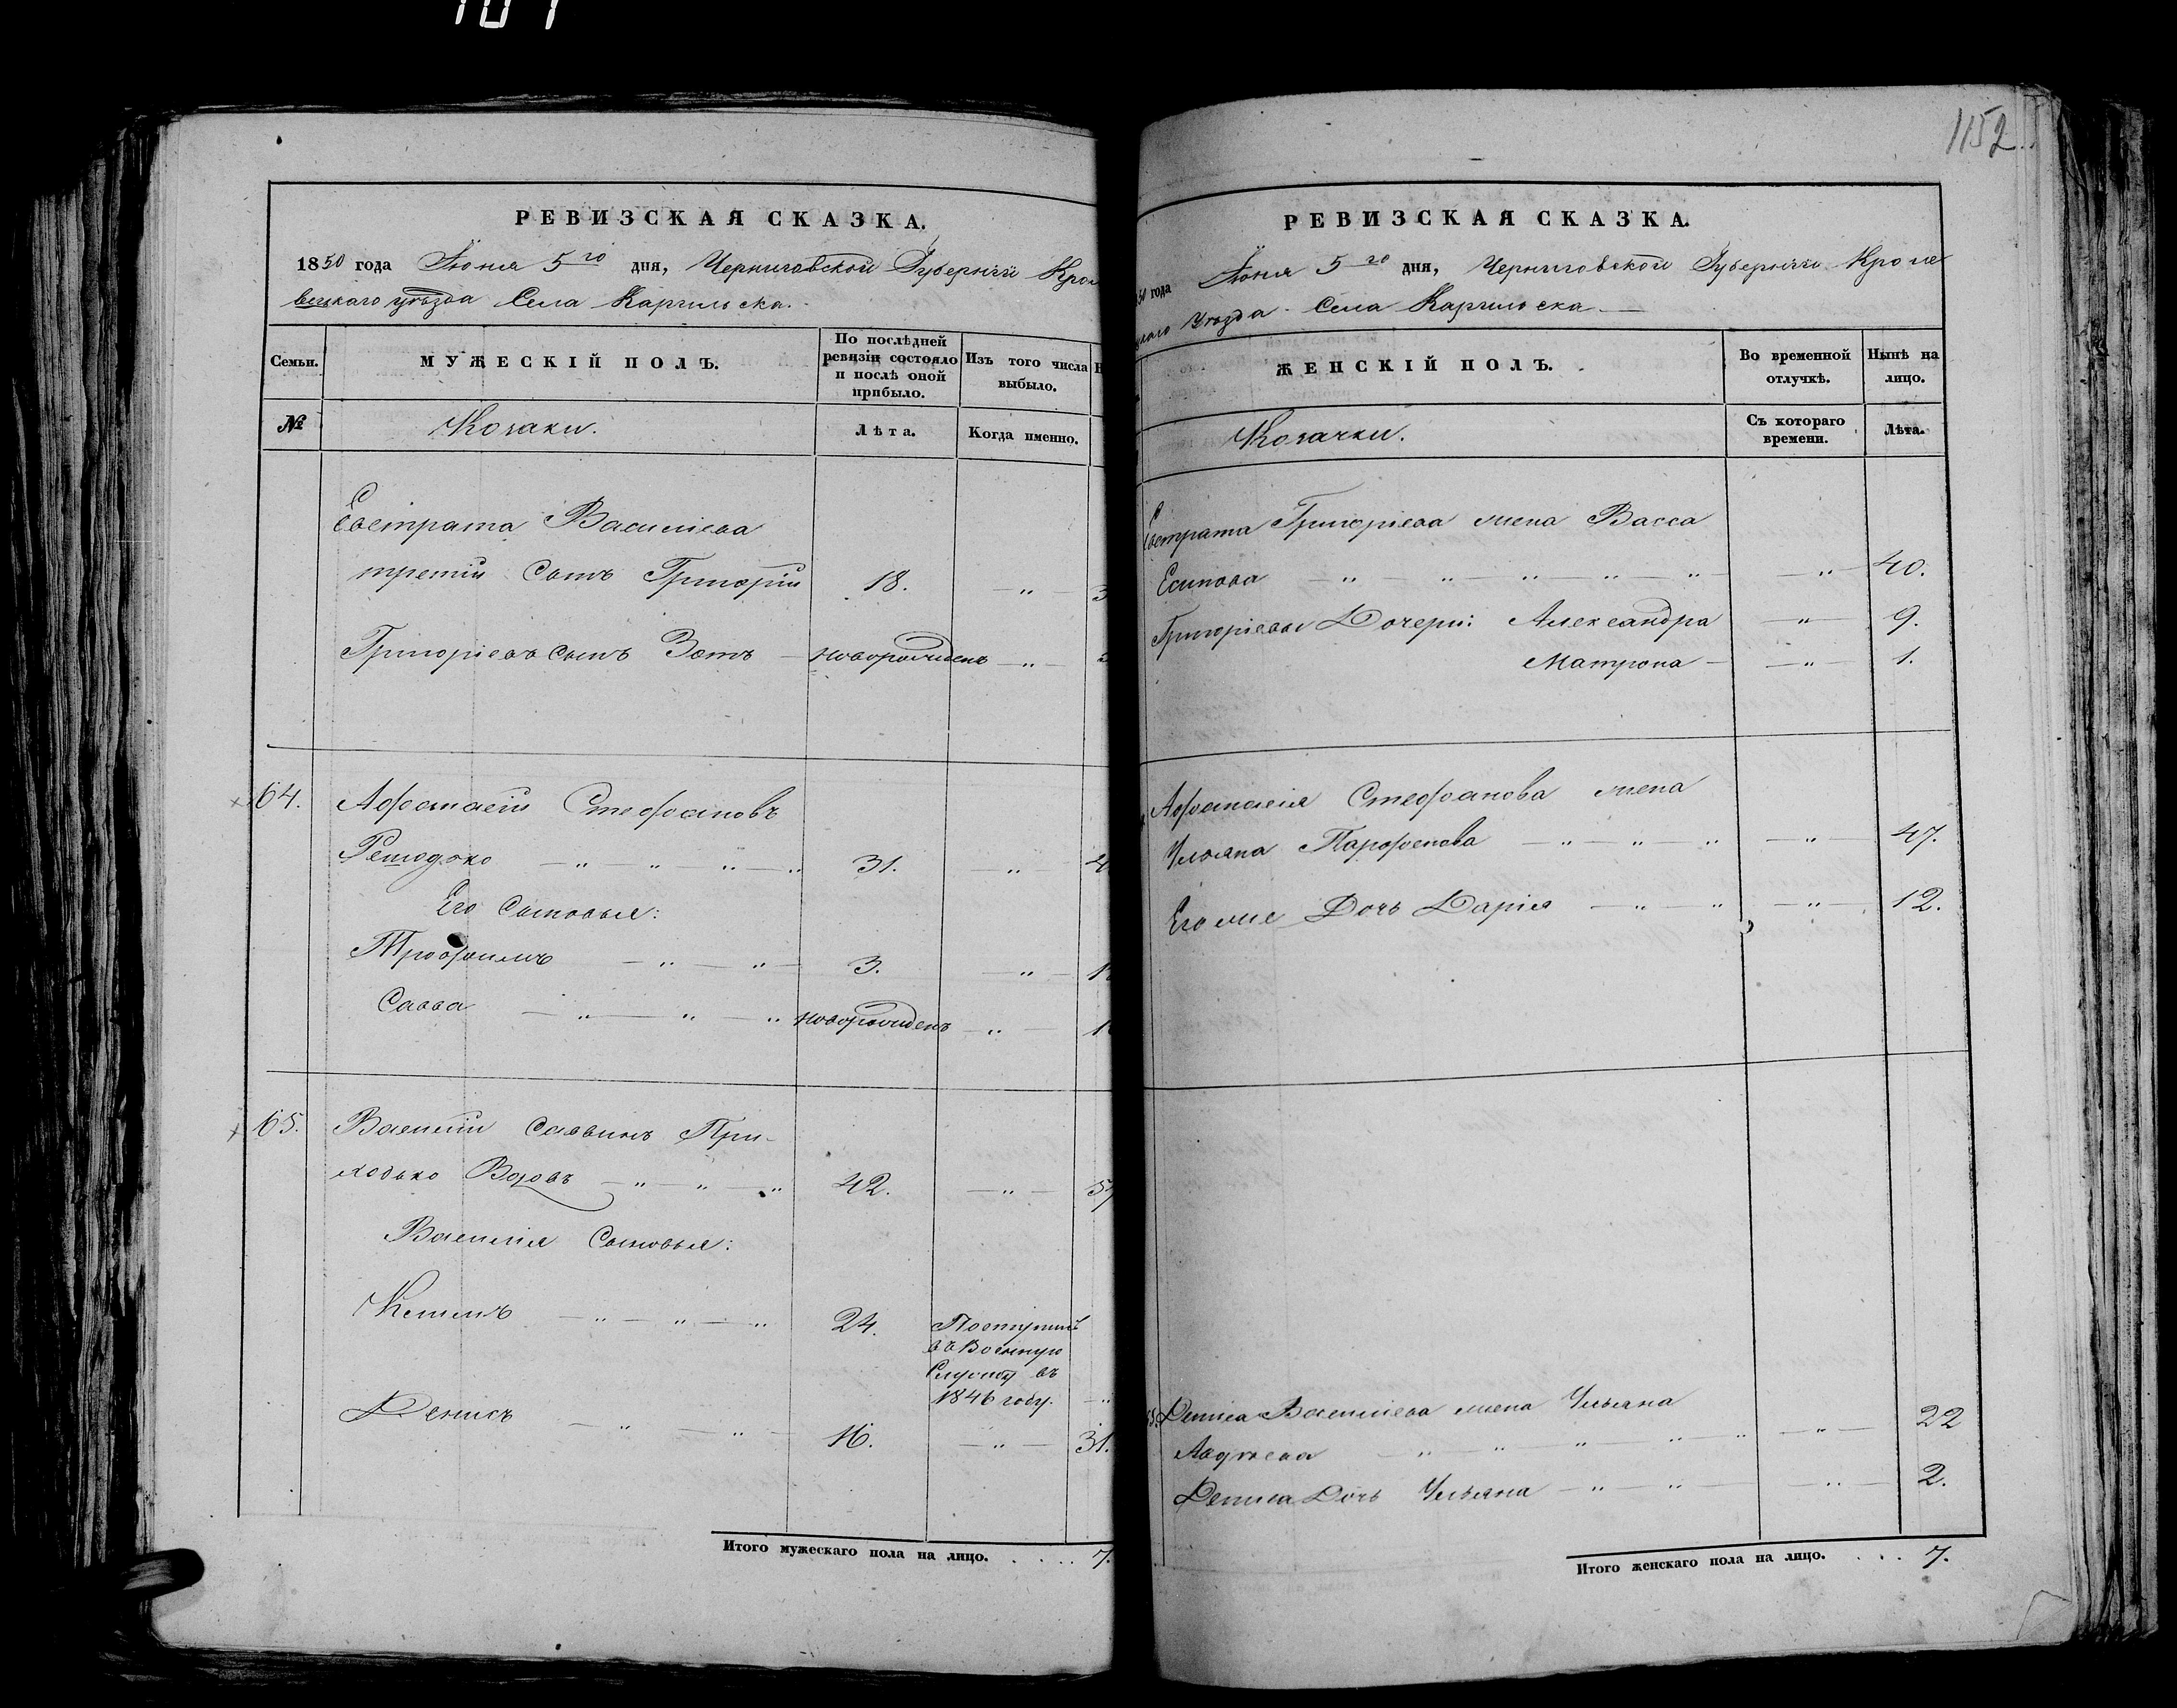 РЕВИЗСКАЯ СКАЗКА.
1850 года Июня 5го дня, Черниговской Губернии Крол
вецкаго уѣзда Села Каргильска.
Семьи.
МУЖЕСКІЙ ПОЛЪ.
По послѣдней
ревизіи состояло
и послѣ оной
прибыло.
Изъ того числа
выбыло.
№
Козаки.
Лѣта.
Когда именно.
Евстрата Василіева
третій сынъ Григорій 18. — " —
Григоріевъ сынъ Зотъ — новорожденъ — " —
64. Афанасій Стефановъ
— " " " — " 31. — " —
Его Сыновья:
Трофимъ — " — " — 3. — " —
Савва — " — " — " новорожденъ — " —
65. Василій Саввинъ При-
ходько Вдовъ — " — " — " 42. — " — 57
Василія Сыновья:
— " — " — " 24. Поступилъ
въ Военную
Службу въ
1846 году. — "
Денисъ — " — " — 16. — " — 31.
Итого мужескаго пола на лицо. . . . . 7.
1152
РЕВИЗСКАЯ СКАЗКА.
50 года Июня 5го дня, Черниговской Губернии Кроле
Уѣзда Села Каргильска —
ЖЕНСКІЙ ПОЛЪ.
Во временной
отлучкѣ.
Нынѣ на
лицо.
Козачки.
Съ котораго
времени.
Лѣта.
Евстрата Григоріева жена Васса
Есипова — " " " — " — " — — " — 40.
Григоріевы Дочери: Александра — " — 9.
Матрона — — " — 1.
Афанасія Стефанова жена
Ульяна Парфенова — " — " — " — " — 47.
Его же Дочь Дарія — " — " — " — 12.
Дениса Василіева жена Ульяна
Авдѣева — " — " " — " — " — " — 22
Дениса Дочь Ульяна — " — " — " — 2.
Итого женскаго пола на лицо. . . . 7.